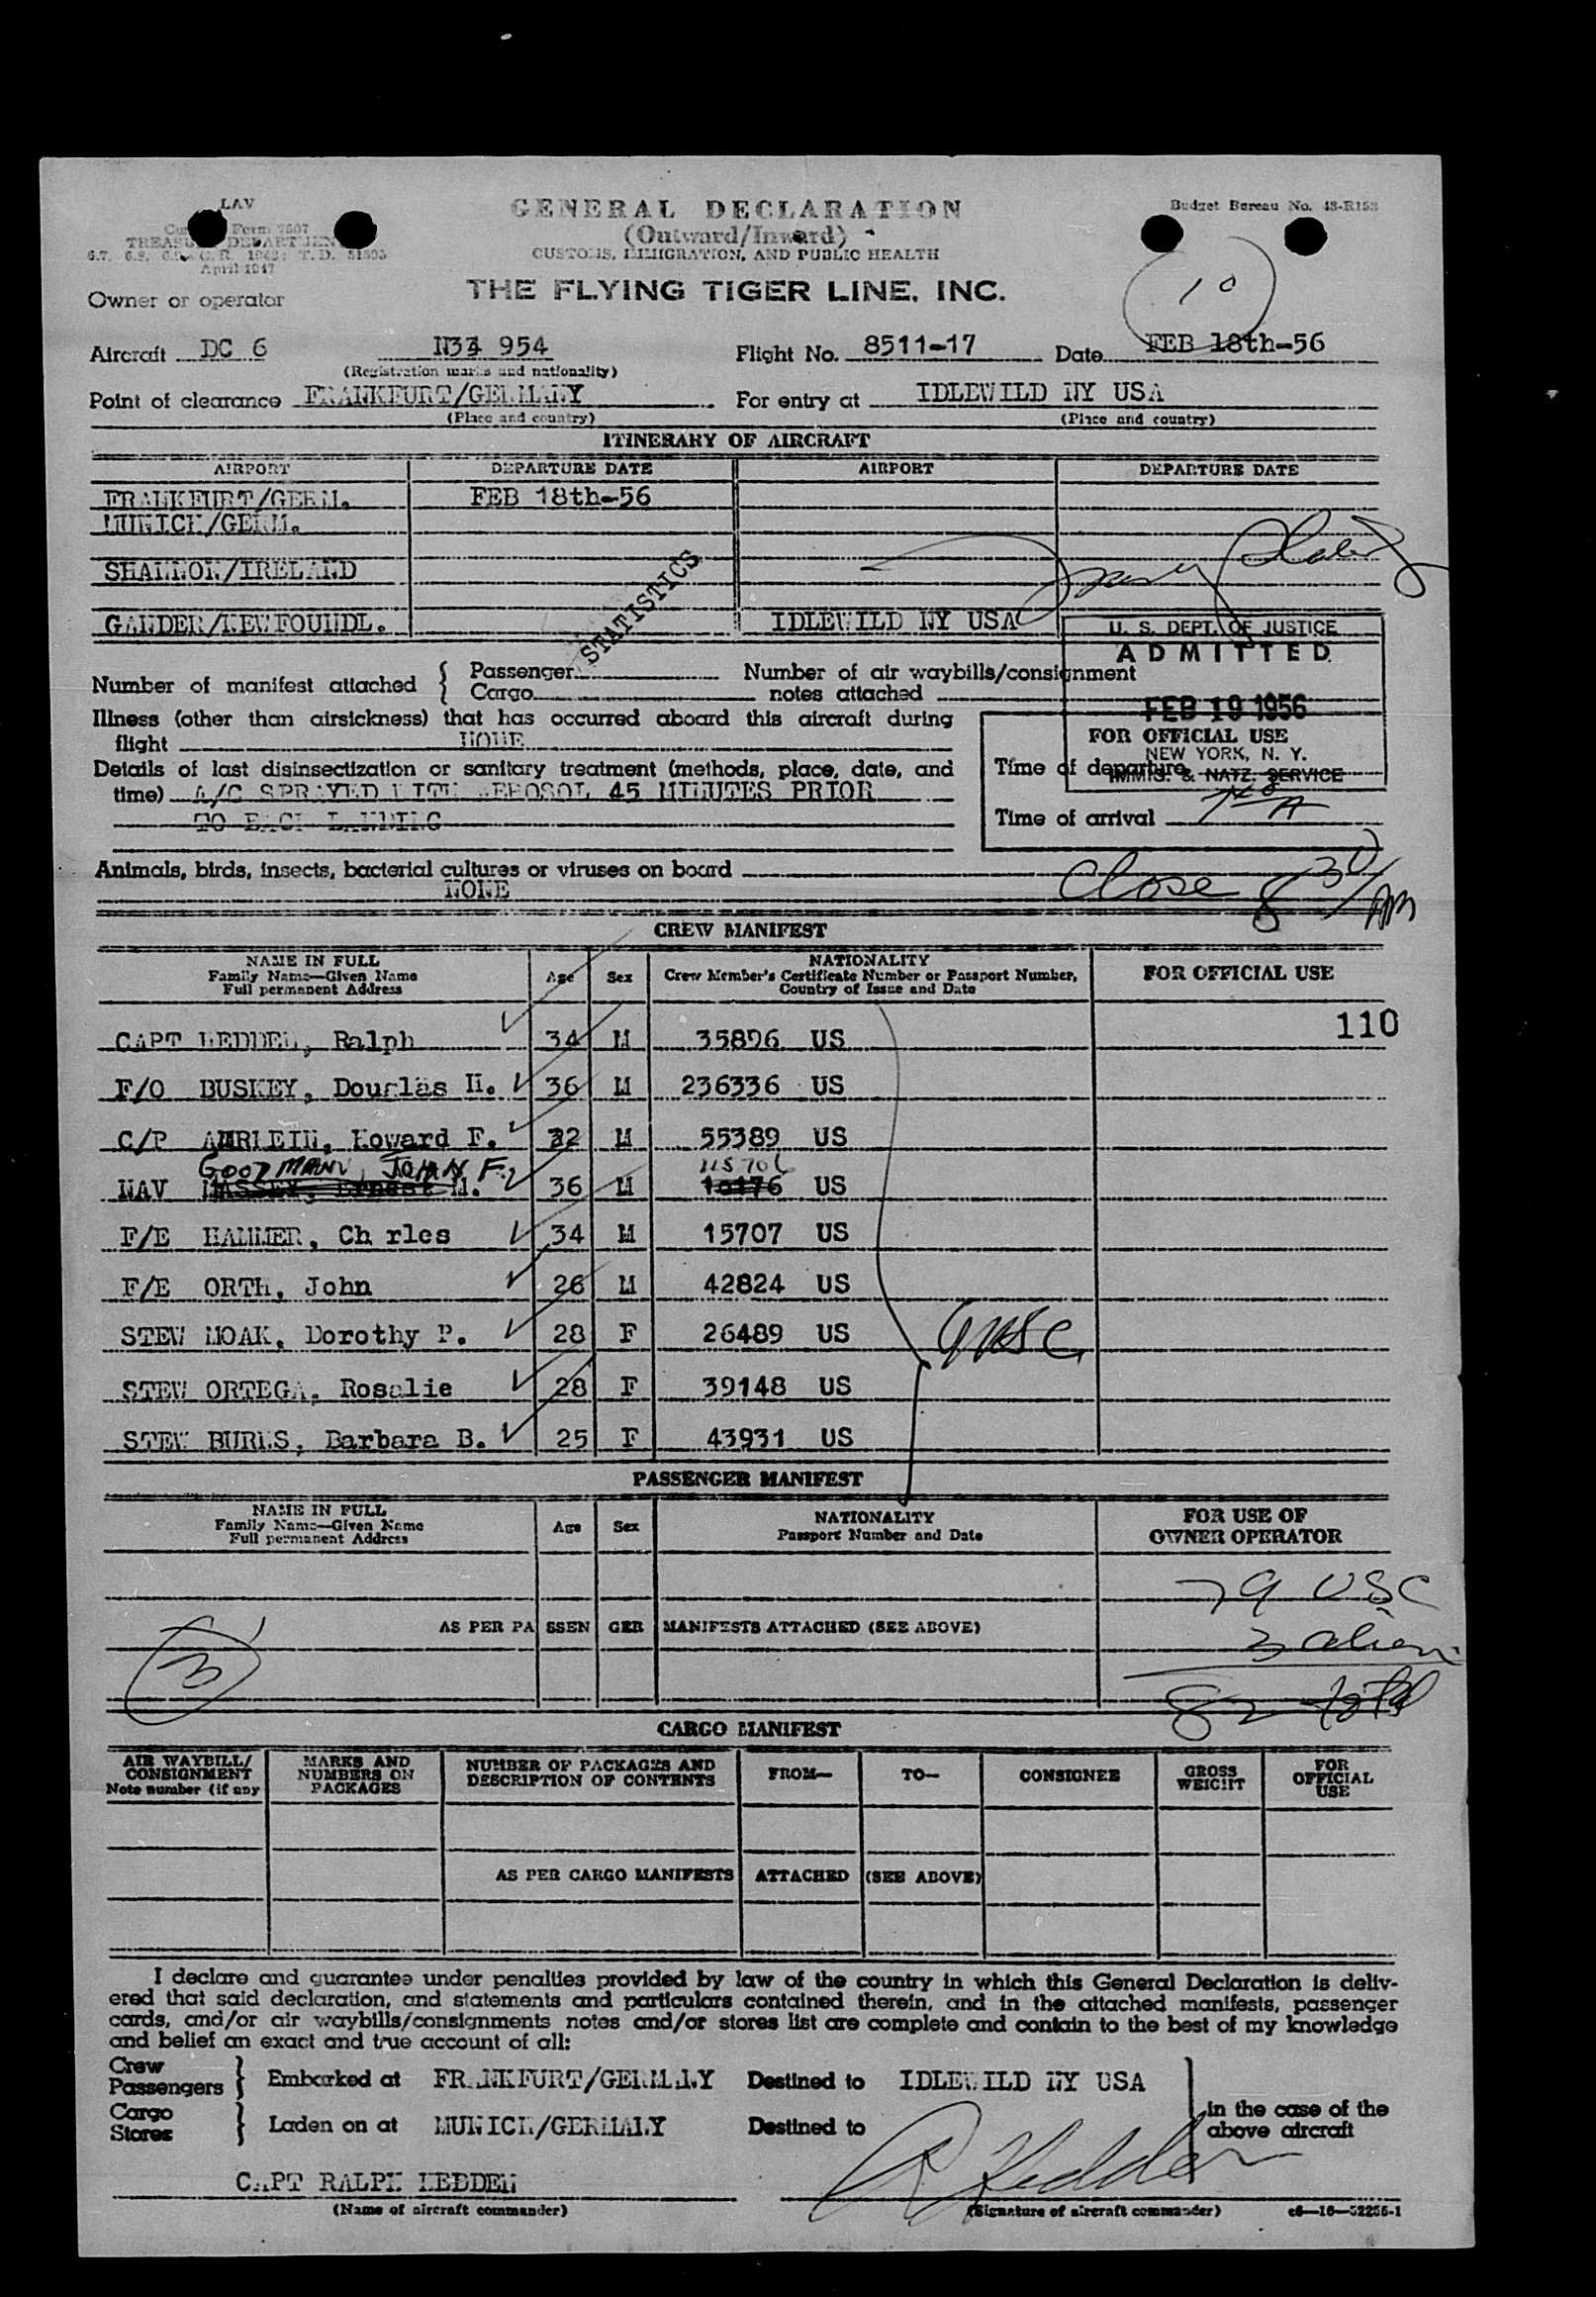 LAV
GENERAL DECLARATION
Budget Bureau No. 48-R153
(Outward/Inward)
TREASURY DEPARTMENT
CUSTOMS, IMMIGRATION, AND PUBLIC HEALTH
April 1947
10
Owner or operator
THE FLYING TIGER LINE, INC.
Aircraft DC 6 954 Flight No. 8511-17 Date FEB 18th-56
(Registration marks and nationality)
Point of clearance FRANKFURT/GERMANY For entry at IDLEWILD NY USA
(Place and country) (Place and country)
ITINERARY OF AIRCRAFT
AIRPORT DEPARTURE DATE AIRPORT DEPARTURE DATE
FRANKFURT/GERM. FEB 18th-56
MUNICH/GERM.
SHANNON/IRELAND
GANDER/NEWFOUNDL. IDLEWILD NY USA
STATISTICS
U. S. DEPT. OF JUSTICE
ADMITTED
FEB 19 1956
NEW YORK, N. Y.
IMMIG. & NATZ. SERVICE
Number of manifest attached { Passenger
Cargo
Number of air waybills/consignment
notes attached
Illness (other than airsickness) that has occurred aboard this aircraft during
flight NONE
FOR OFFICIAL USE
Details of last disinsectization or sanitary treatment (methods, place, date, and
time) A/C SPRAYED WITH AEROSOL 45 MINUTES PRIOR
TO EACH LANDING
Time of departure
Time of arrival
Animals, birds, insects, bacterial cultures or viruses on board
NONE
Close 8 30/AM
CREW MANIFEST
NAME IN FULL
Family Name—Given Name
Full permanent Address
Age Sex
NATIONALITY
Crew Member's Certificate Number or Passport Number,
Country of Issue and Date
FOR OFFICIAL USE
110
CAPT HEDDEN, Ralph 34 M 35896 US
F/O BUSKEY, Douglas H. 36 M 236336 US
C/P Howard F. 32 M 55389 US
GOODMANN, JOHN F.
NAV 36 M US
F/E HAMMER, Ch rles 34 M 15707 US
F/E ORTH, John 26 M 42824 US
STEW MOAK, Dorothy P. 28 F 26489 US
STEW ORTEGA, Rosalie 28 F 39148 US
STEW BURNS, Barbara B. 25 F 43931 US
9 USC
PASSENGER MANIFEST
NAME IN FULL
Family Name—Given Name
Full permanent Address
Age Sex
NATIONALITY
Passport Number and Date
FOR USE OF
OWNER OPERATOR
79 USC
AS PER PASSENGER MANIFESTS ATTACHED (SEE ABOVE)
3 alien
3
82 total
CARGO MANIFEST
AIR WAYBILL/
CONSIGNMENT
Note number (if any
MARKS AND
NUMBERS ON
PACKAGES
NUMBER OF PACKAGES AND
DESCRIPTION OF CONTENTS
FROM— TO— CONSIGNEE
GROSS
WEIGHT
FOR
OFFICIAL
USE
AS PER CARGO MANIFESTS ATTACHED (SEE ABOVE)
I declare and guarantee under penalties provided by law of the country in which this General Declaration is deliv-
ered that said declaration, and statements and particulars contained therein, and in the attached manifests, passenger
cards, and/or air waybills/consignments notes and/or stores list are complete and contain to the best of my knowledge
and belief an exact and true account of all:
Crew
Passengers } Embarked at FRANKFURT/GERMANY Destined to IDLEWILD NY USA
Cargo
Stores } Laden on at MUNICH/GERMANY Destined to
in the case of the
above aircraft
CAPT RALPH HEDDEN
R Hedden
(Name of aircraft commander) (Signature of aircraft commander)